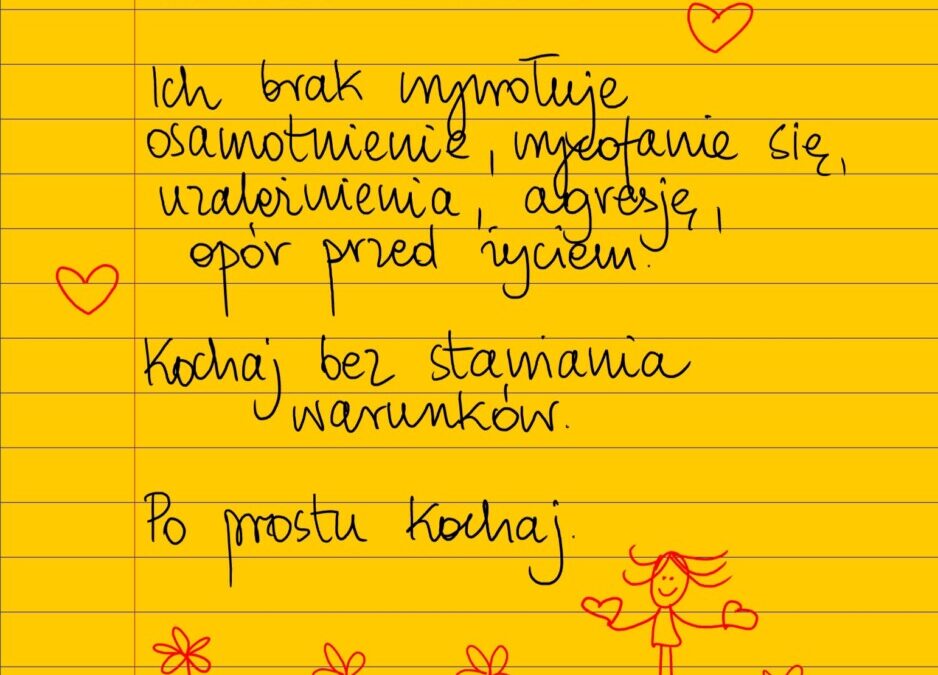 Ich brak wywołuje
osamotnienie, wycofanie się,
uzależnienia, agresję,
opór przed życiem.
Kochaj bez stawiania
warunków.
Po prostu kochaj.